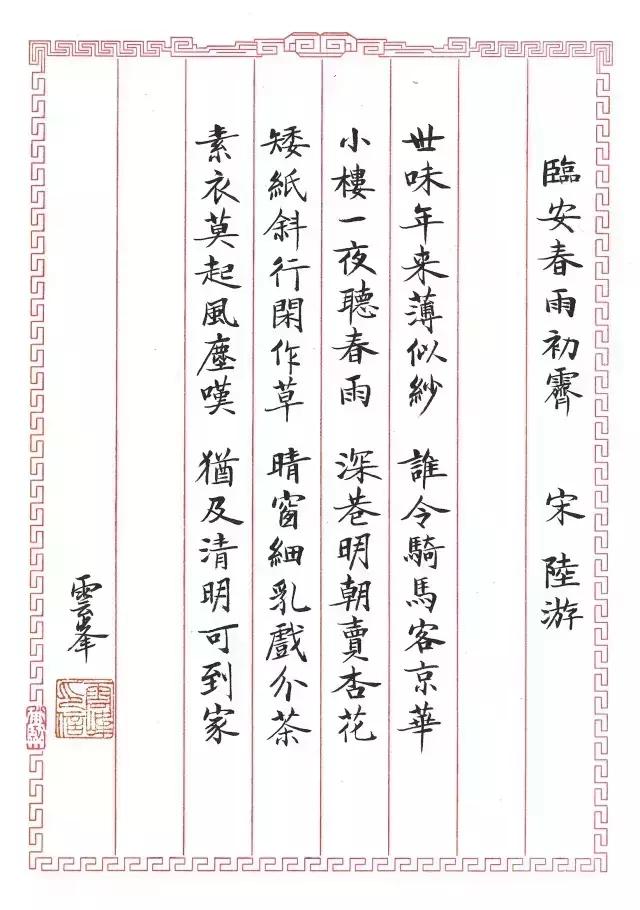 臨安春雨初霽 宋 陸游
世味年来薄似紗 誰令騎馬客京華
小樓一夜聽春雨 深巷明朝賣杏花
矮紙斜行閑作草 晴窗細乳戲分茶
素衣莫起風塵嘆 猶及清明可到家
雲峯